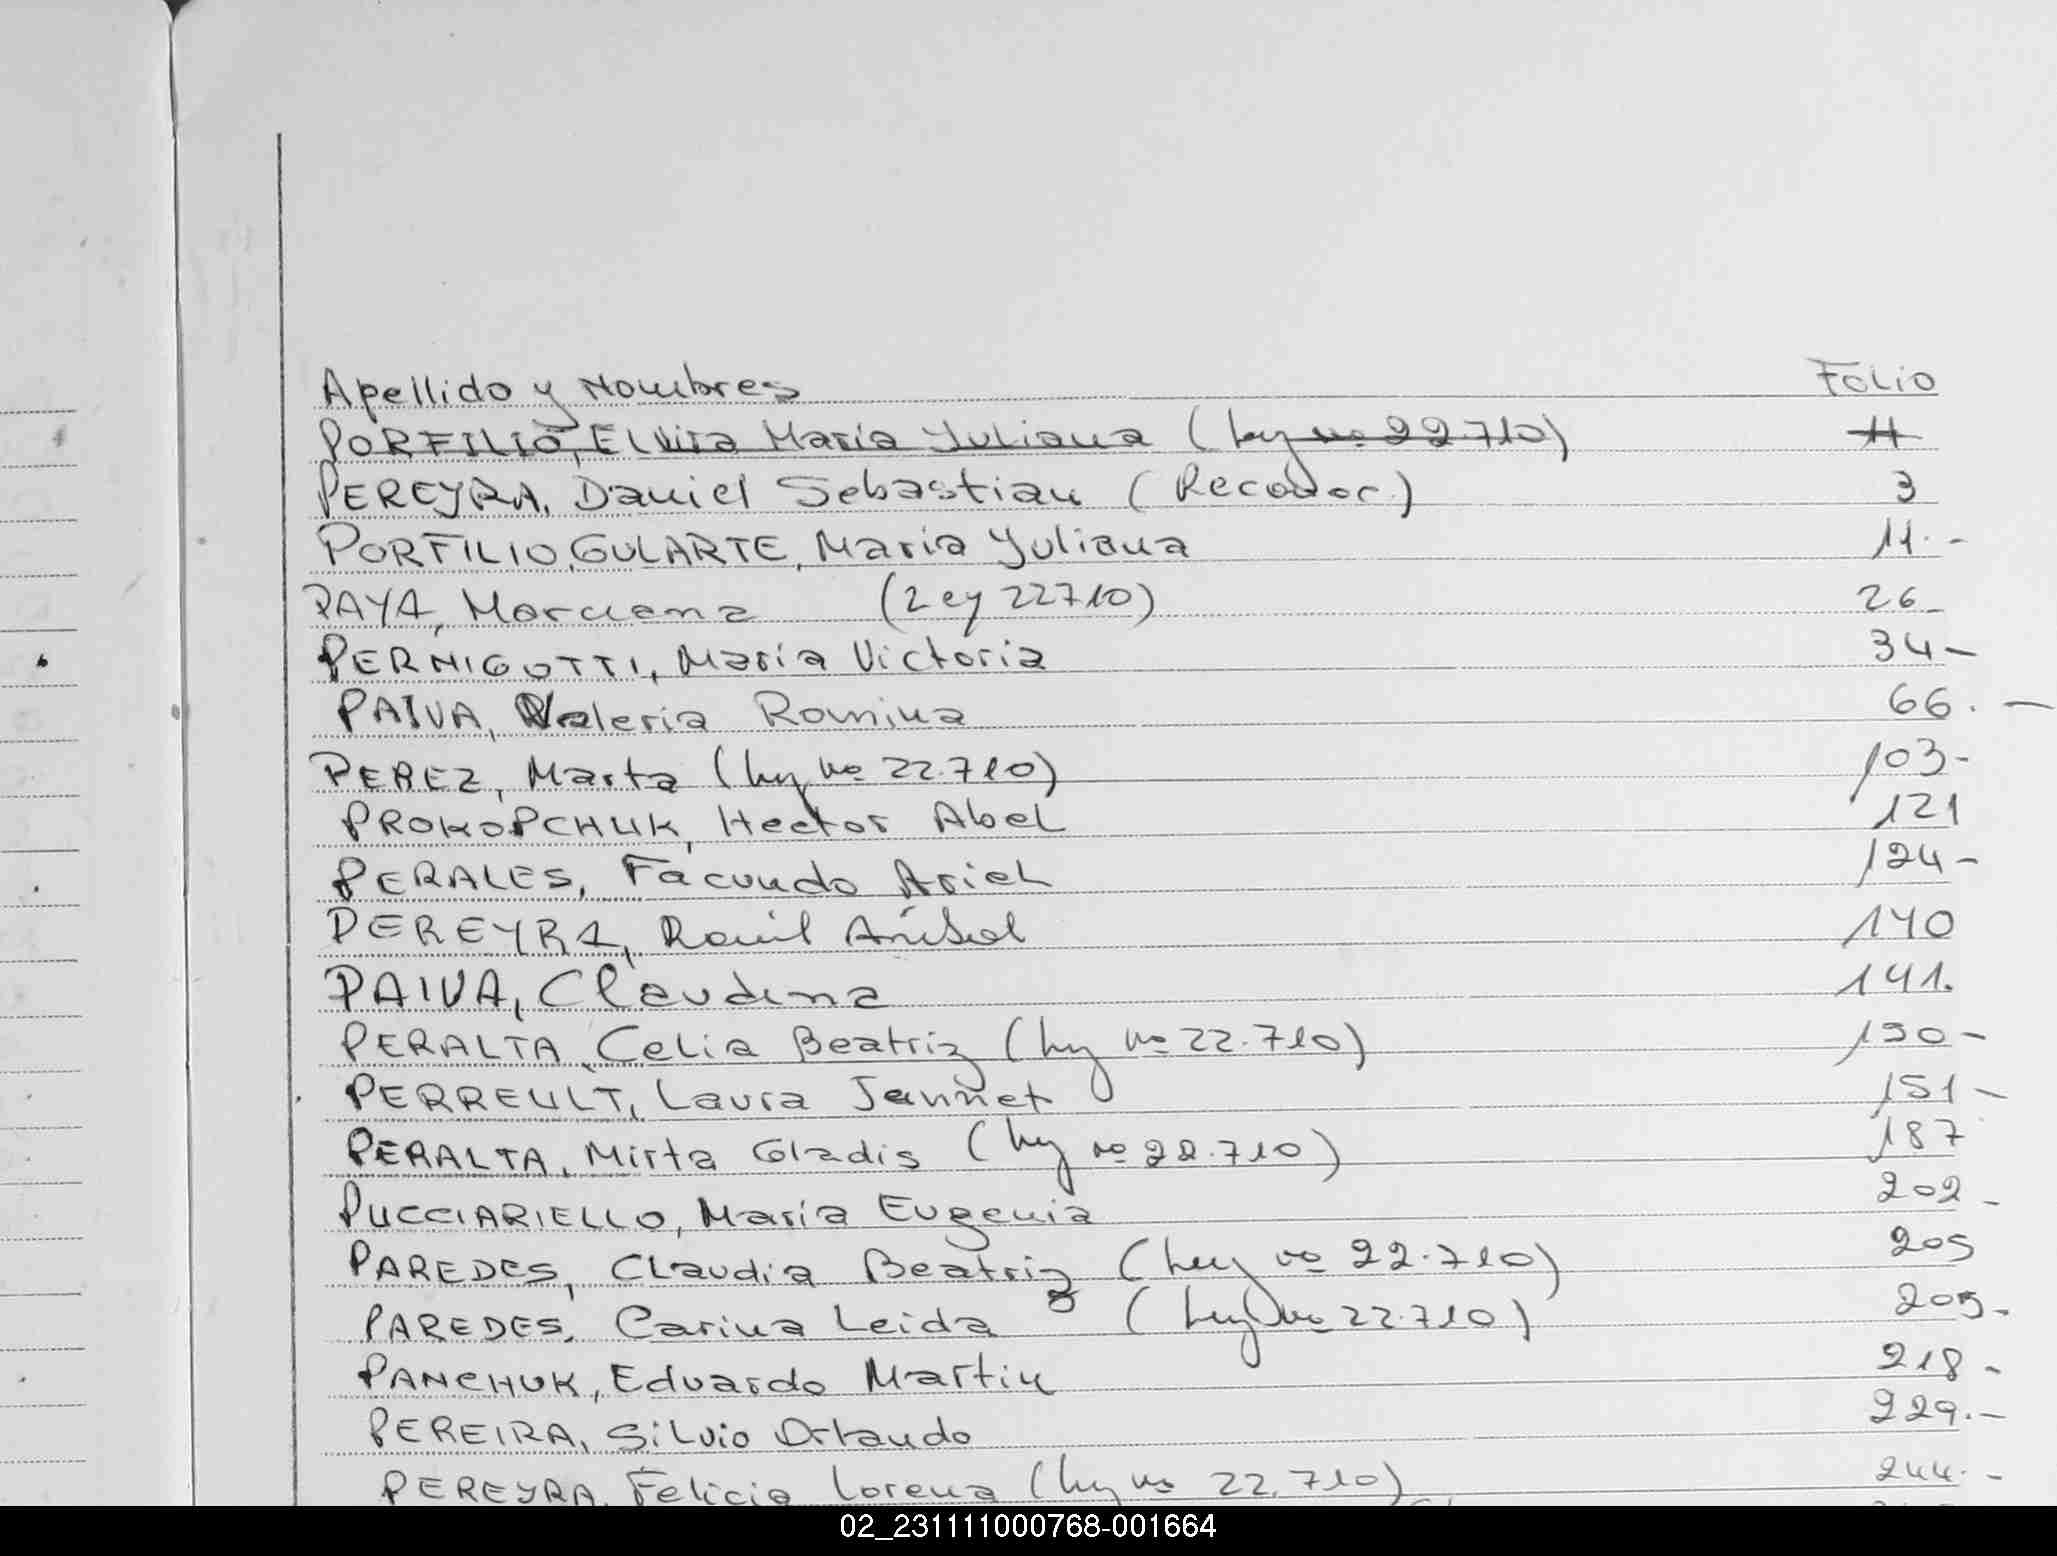 Apellido y Nombres Folio
PORFILIO, Elvira María Yuliana (Ley no 22.710) 11
PEREYRA, Daniel Sebastian ( 3
PORFILIO, GULARTE, María Yuliana 11.-
PAYA, (Ley 22710) 26-
PERNIGOTTI, María Victoria 34-
PAIVA, Valeria Romina 66.-
PEREZ, Marta (Ley no 22.710) 103-
PROKOPCHUK, Hector Abel 121
PERALES, Facundo Ariel 124-
PEREYRA, Raúl Aníbal 140
PAIVA, Claudina 141.
PERALTA, Celia Beatriz (Ley no 22.710) 150-
PERREULT, Laura Jannet 151-
PERALTA, Mirta Gladis (Ley no 22.710) 187
PUCCIARIELLO, María Eugenia 202-
PAREDES, Claudia Beatriz (Ley no 22.710) 205
PAREDES, Carina Leida (Ley no 22.710) 205-
PANCHUK, Eduardo Martin 218-
PEREIRA, Silvio Orlando 229.-
PEREYRA, Felicia Lorena (Ley no 22.710) 244.-
02_231111000768-001664